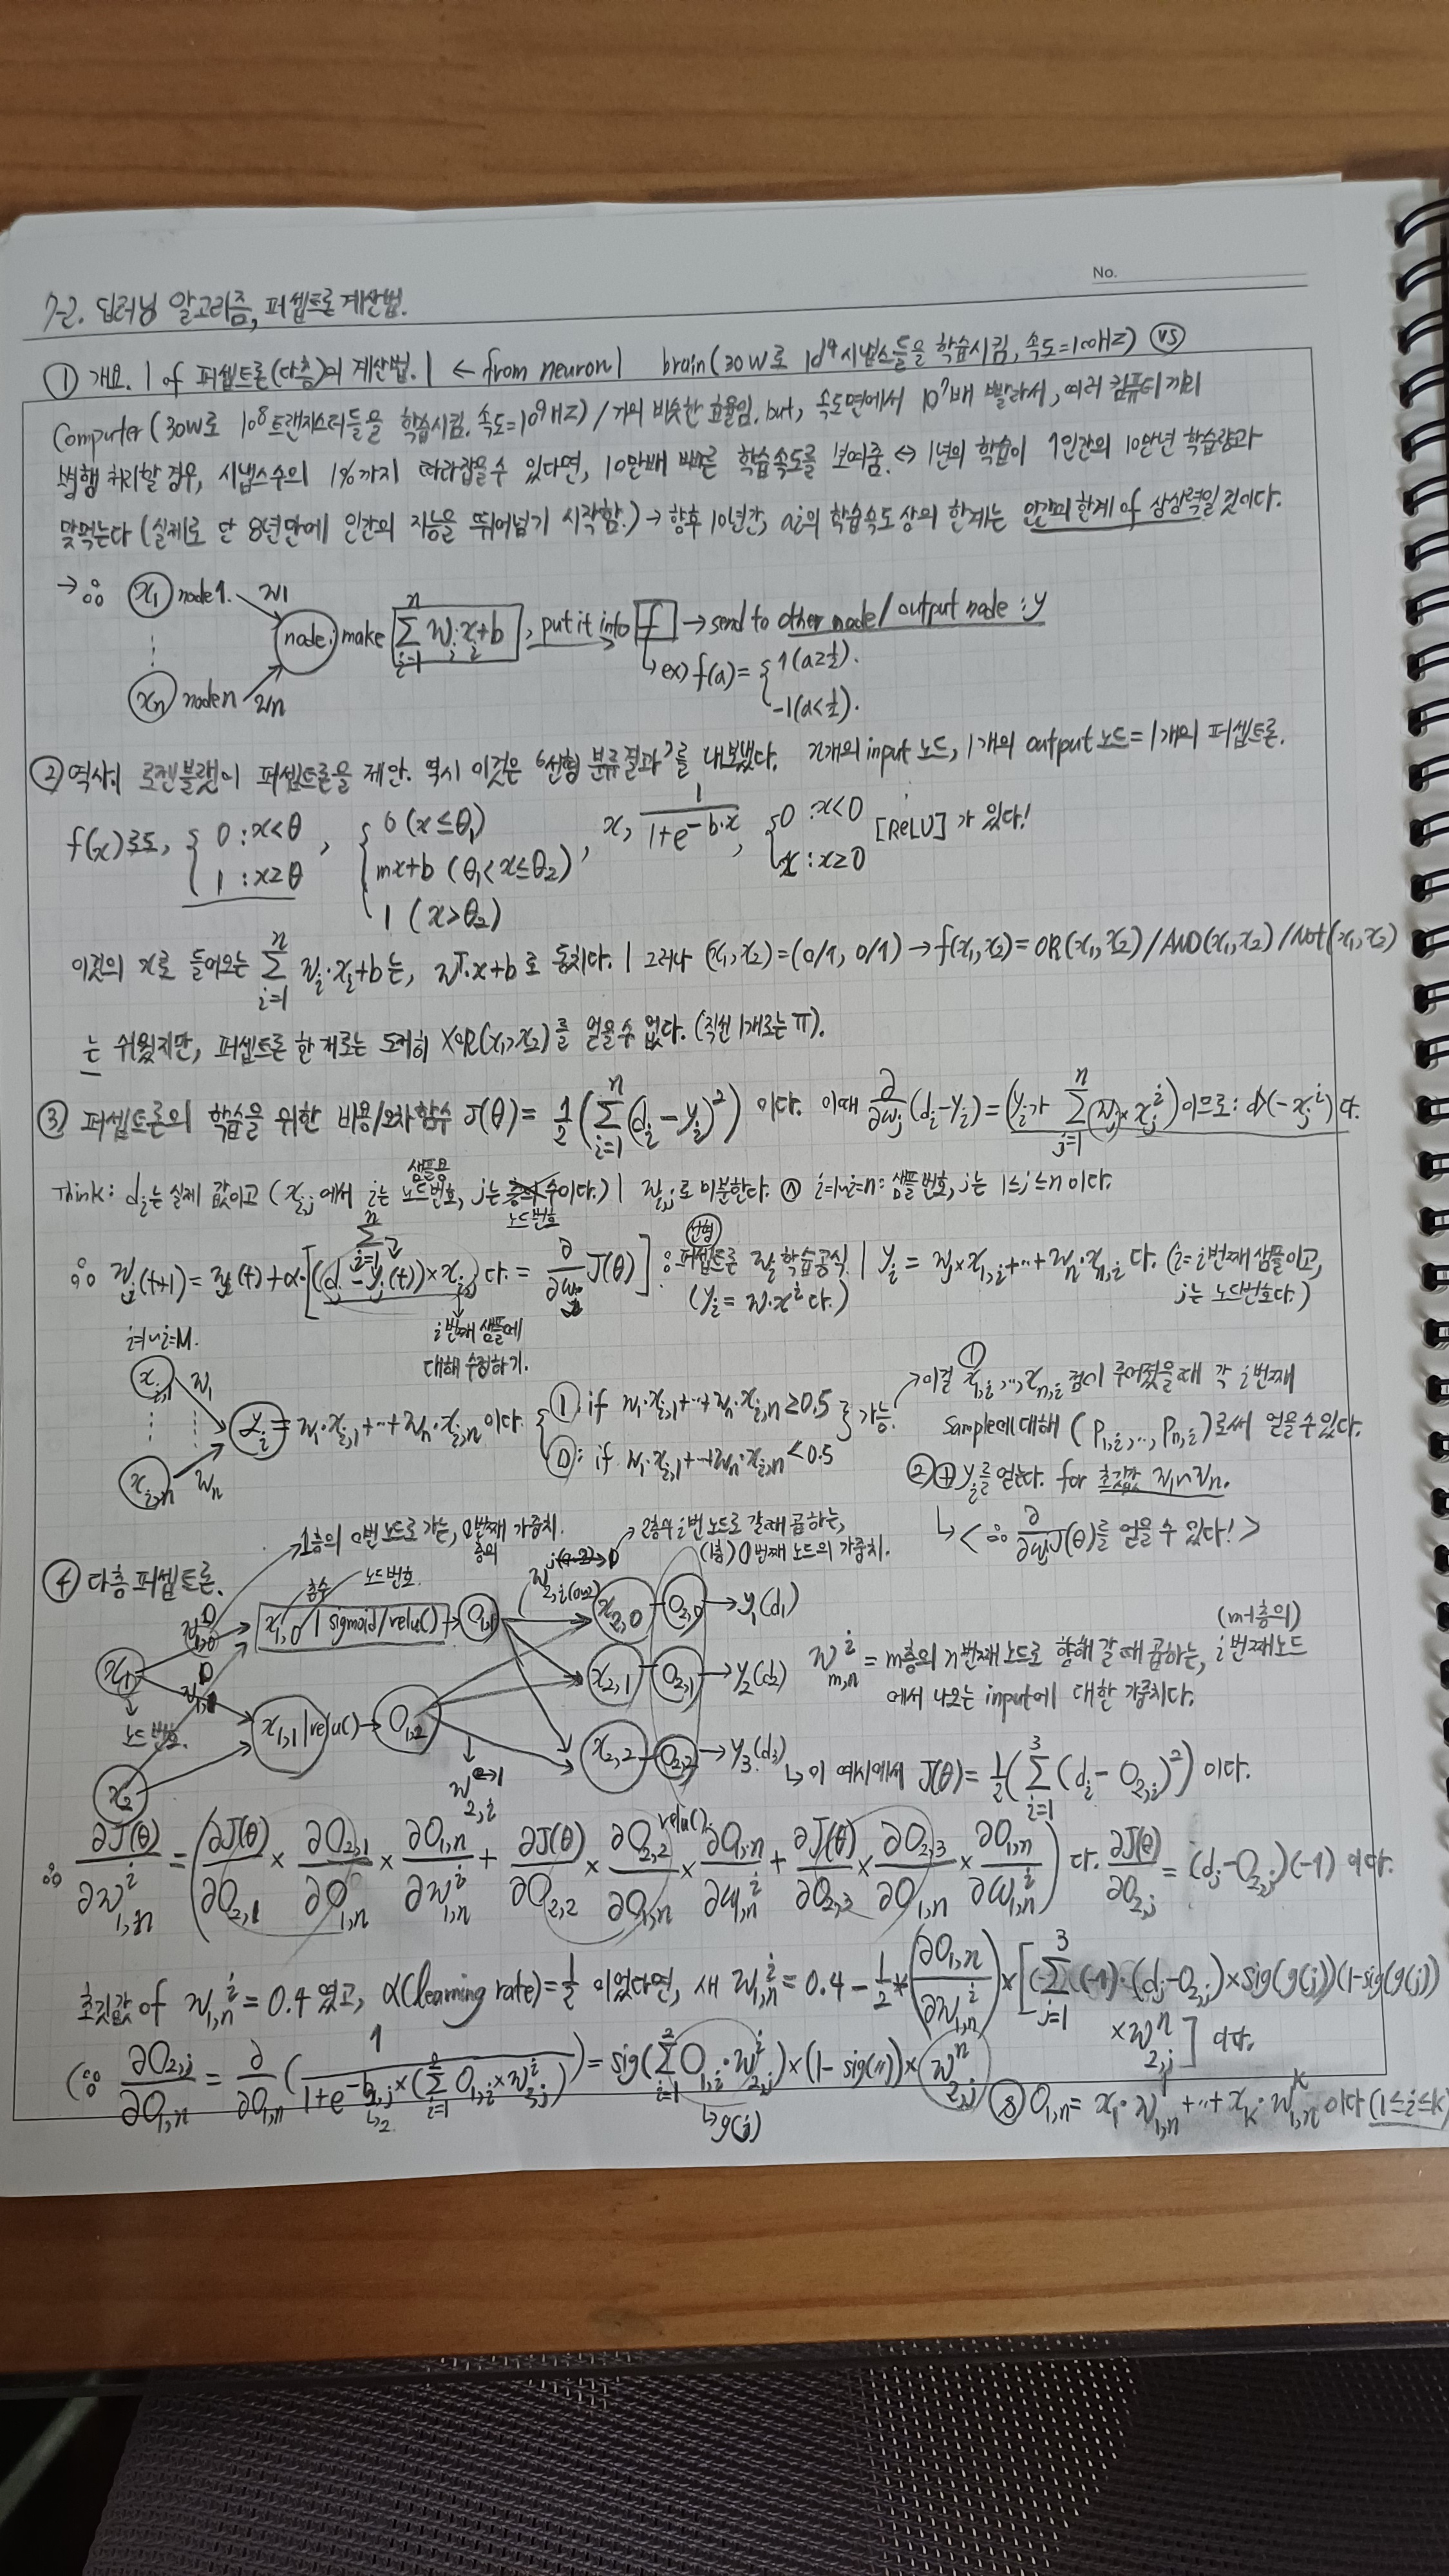 No.
7-2. 딥러닝 알고리즘, 퍼셉트론 계산법.
① 개요. | of 퍼셉트론(다층)의 계산법. | ← from neuron | brain(30W로 10¹⁴ 시냅스들을 학습시킴, 속도=100Hz) VS
Computer(30W로 10⁸트랜지스터들을 학습시킴. 속도=10⁹Hz) / 거의 비슷한 효율임. but, 속도면에서 10⁷배 빨라서, 여러 컴퓨터끼리
병행 처리할 경우, 시냅스수의 1%까지 따라잡을 수 있다면, 10만배 빠른 학습속도를 보여줌. ↔ 1년의 학습이 1인간의 10만년 학습량과
맞먹는다 (실제로 단 8년만에 인간의 지능을 뛰어넘기 시작함.) → 향후 10년간, ai의 학습속도 상의 한계는 인간의 한계 of 상상력일 것이다.
→ ∴ x₁ node1. w₁
node: make Σ(i=1→n) wᵢxᵢ+b, put it into f → send to other node/output node : y
xₙ node n wₙ
↳ ex) f(a) = { 1(a≥½).
-1(a<½).
② 역사. | 로젠블랫이 퍼셉트론을 제안. 역시 이것은 '선형 분류 결과'를 내보냈다. n개의 input 노드, 1개의 output 노드 = 1개의 퍼셉트론.
f(x)로도, { 0 : x<θ, 1 : x≥θ , { 0 (x≤θ₁), mx+b (θ₁<x≤θ₂), 1 (x>θ₂) , x, 1/(1+e^(-b·x)), { 0 : x<0, x : x≥0 [ReLU] 가 있다!
이것의 x로 들어오는 Σ(i=1→n) wᵢ·xᵢ+b는, wᵀ·x+b로 퉁치다. | 그러나 (x₁,x₂)=(0/1, 0/1) → f(x₁,x₂)=OR(x₁,x₂)/AND(x₁,x₂)/Not(x₁,x₂)
는 쉬웠지만, 퍼셉트론 한 개로는 도저히 XOR(x₁,x₂)를 얻을 수 없다. (직선 1개로는 ㅠ).
③ 퍼셉트론의 학습을 위한 비용/오차함수 J(θ) = ½(Σ(i=1→n)(dᵢ-yᵢ)²) 이다. 이때 ∂/∂wⱼ(dᵢ-yᵢ) = (yᵢ가 Σ(j=1→n)(wⱼ)×xⱼⁱ)이므로: (-xⱼⁱ)다.
Think: dᵢ는 실제 값이고 (xᵢ,ⱼ에서 i는 샘플용 노드번호, j는 노드번호 이다.) | wⱼ로 미분한다. ∧ i=1~i=n: 샘플번호, j는 1≤j≤n이다.
∴ wⱼ(t+1) = wⱼ(t)+α·[Σ(i=1→n)(dᵢ-yᵢ(t))×xᵢ,ⱼ 다. = ∂/∂wⱼ J(θ)] : 선형 퍼셉트론 w 학습공식. | yᵢ = w₁×x₁,ᵢ+…+wₙ·xₙ,ᵢ 다. (i=i번째 샘플이고,
(yᵢ = w·xⁱ 다.) j는 노드번호다.)
i번째 샘플에
대해 수정하기.
i=1~i=M.
xᵢ,₁ w₁
yᵢ = w₁·xᵢ,₁+…+wₙ·xᵢ,ₙ이다. { ①: if w₁·xᵢ,₁+…+wₙ·xᵢ,ₙ≥0.5
⓪: if w₁·xᵢ,₁+…+wₙ·xᵢ,ₙ<0.5 } 가능.
xᵢ,ₙ wₙ
→ 이걸 ① x₁,ᵢ,…,xₙ,ᵢ 점이 주어졌을때 각 i번째
sample에 대해 (P₁,ᵢ,…,Pₙ,ᵢ)로써 얻을 수 있다.
②+ yᵢ를 얻는다. for 초깃값 w₁~wₙ.
↳ <∴ ∂/∂wⱼ J(θ)를 얻을 수 있다!>
④ 다층 퍼셉트론.
→ 1층의 0번 노드로 가는, 0번째 가중치.
→ 2층의 i번 노드로 갈때 곱하는,
(1층) 0번째 노드의 가중치.
층수 노드번호.
x₁ w⁰₁,₀ x₁,₀ | sigmoid/relu() → O₁,₁ x₂,₀ O₂,₀ → y₁(d₁)
노드번호. x₁,₁ | relu() → O₁,₂ x₂,₁ O₂,₁ → y₂(d₂)
x₂ x₂,₂ O₂,₂ → y₃(d₃)
wⁱₘ,ₙ = m층의 n번째 노드로 향해 갈때 곱하는, (m-1층의) i번째노드
에서 나오는 input에 대한 가중치다.
↳ 이 예시에서 J(θ) = ½(Σ(i=1→3)(dᵢ-O₂,ᵢ)²) 이다.
∴ ∂J(θ)/∂wⁱ₁,ₙ = (∂J(θ)/∂O₂,₁ × ∂O₂,₁/∂O₁,ₙ × ∂O₁,ₙ/∂wⁱ₁,ₙ + ∂J(θ)/∂O₂,₂ × ∂O₂,₂/∂O₁,ₙ × ∂O₁,ₙ/∂wⁱ₁,ₙ + ∂J(θ)/∂O₂,₃ × ∂O₂,₃/∂O₁,ₙ × ∂O₁,ₙ/∂wⁱ₁,ₙ) 다. ∂J(θ)/∂O₂,ⱼ = (dⱼ-O₂,ⱼ)(-1) 이다.
초깃값 of wⁱ₁,ₙ = 0.4 였고, α(learning rate)=½ 이었다면, 새 wⁱ₁,ₙ = 0.4 - ½*(∂O₁,ₙ/∂wⁱ₁,ₙ)×[Σ(j=1→3)(-1)·(dⱼ-O₂,ⱼ)×sig(g(j))(1-sig(g(j))
×wⁿ₂,ⱼ] 이다.
(∴ ∂O₂,ⱼ/∂O₁,ₙ = ∂/∂O₁,ₙ(1/(1+e^(-b₂,ⱼ×(Σ(i=1→2)O₁,ᵢ×wⁱ₂,ⱼ)))) = sig(Σ(i=1→2)O₁,ᵢ·wⁱ₂,ⱼ)×(1-sig(〃))×wⁿ₂,ⱼ) O₁,ₙ = x₁·w¹₁,ₙ+…+xₖ·wᵏ₁,ₙ이다 (1≤i≤k)
↳g(j)